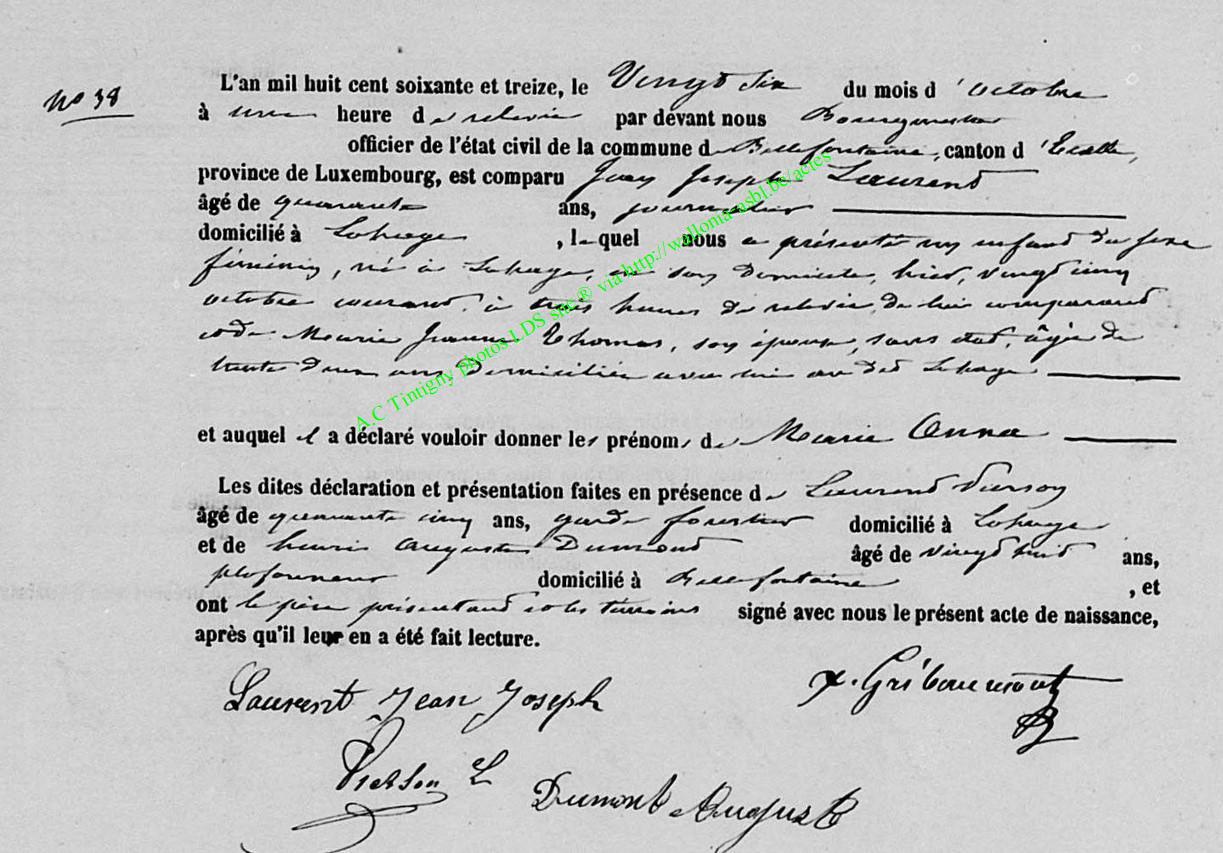 N° 38
L'an mil huit cent soixante et treize, le Vingt six du mois d'octobre
à une heure de relevée par devant nous Bourgmestre
officier de l'état civil de la commune de Bellefontaine, canton d'Etalle,
province de Luxembourg, est comparu Jean Joseph Laurent
âgé de quarante ans, journalier
domicilié à Lahage, lequel nous a présenté un enfant du sexe
féminin, né à Lahage, en son domicile, hier, vingt cinq
octobre courant, à trois heures de relevée, de lui comparant
et de Marie Jeanne Thomas, son épouse, sans état, âgée de
trente deux ans domiciliée avec lui au dit Lahage
et auquel il a déclaré vouloir donner les prénoms de Marie Anna
Les dites déclaration et présentation faites en présence de Laurent Pierson
âgé de quarante cinq ans, garde forestier domicilié à Lahage
et de henri Auguste Dumont âgé de vingt huit ans,
plafonneur domicilié à Bellefontaine, et
ont le père présentant et les témoins signé avec nous le présent acte de naissance,
après qu'il leur en a été fait lecture.
Laurent Jean Joseph
x. Gribaumont
Pierson L
Dumont Auguste
A.C Tintigny photos LDS snc® via http://wallonia-asbl.be/actes